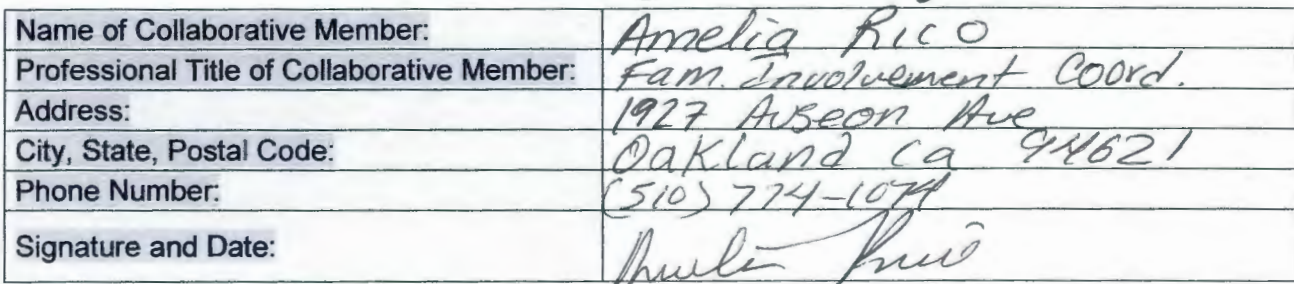 Name of Collaborative Member: Amelia Rico
Professional Title of Collaborative Member: Fam. Involvement Coord.
Address: 1927 Auseon Ave
City, State, Postal Code: Oakland Ca 94621
Phone Number: (510) 774-1074
Signature and Date: Amelia Rico